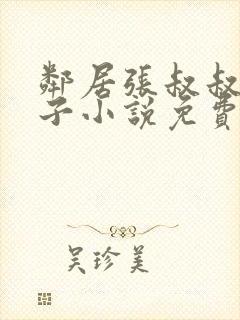 鄰居張叔叔
子小說免費
吳珍美